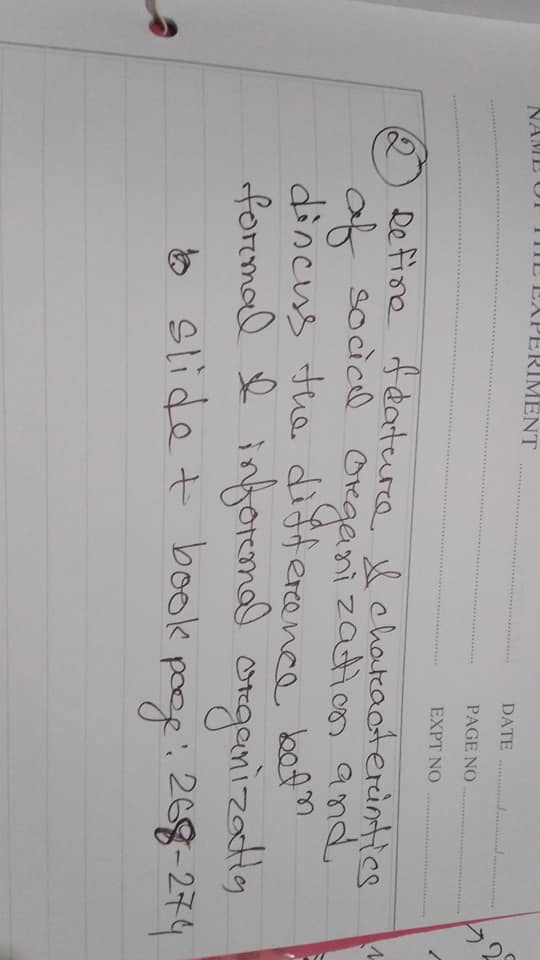 NAME OF THE EXPERIMENT
DATE ......./......./.......
PAGE NO
EXPT NO
② Define feature & characteristics
of social organization and
discuss the difference betⁿ
formal & informal organization
b slide + book page: 268-274